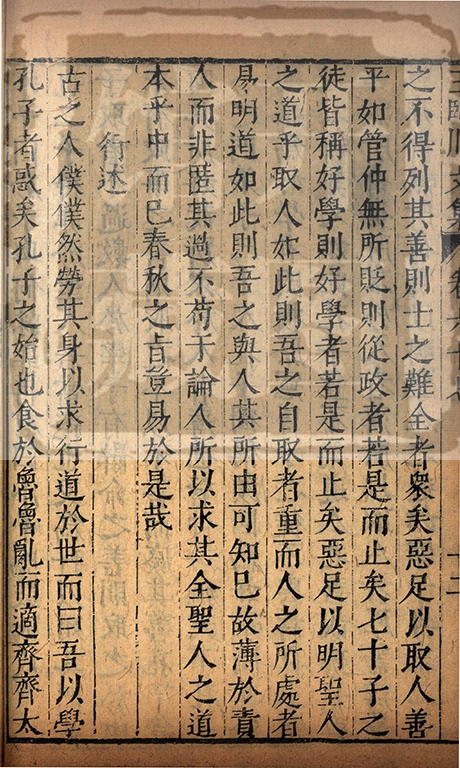 王臨川文集 卷六十七 十二
之不得列其善則士之難全者衆矣惡足以取人善
平如管仲無所貶則從政者若是而止矣七十子之
徒皆稱好學則好學者若是而止矣惡足以明聖人
之道乎取人如此則吾之自取者重而人之所處者
易明道如此則吾之與人其所由可知已故薄於責
人而非匿其過不苟于論人所以求其全聖人之道
本乎中而已春秋之旨豈易於是哉
行述
古之人僕僕然勞其身以求行道於世而曰吾以學
孔子者惑矣孔子之始也食於魯魯亂而適齊齊太